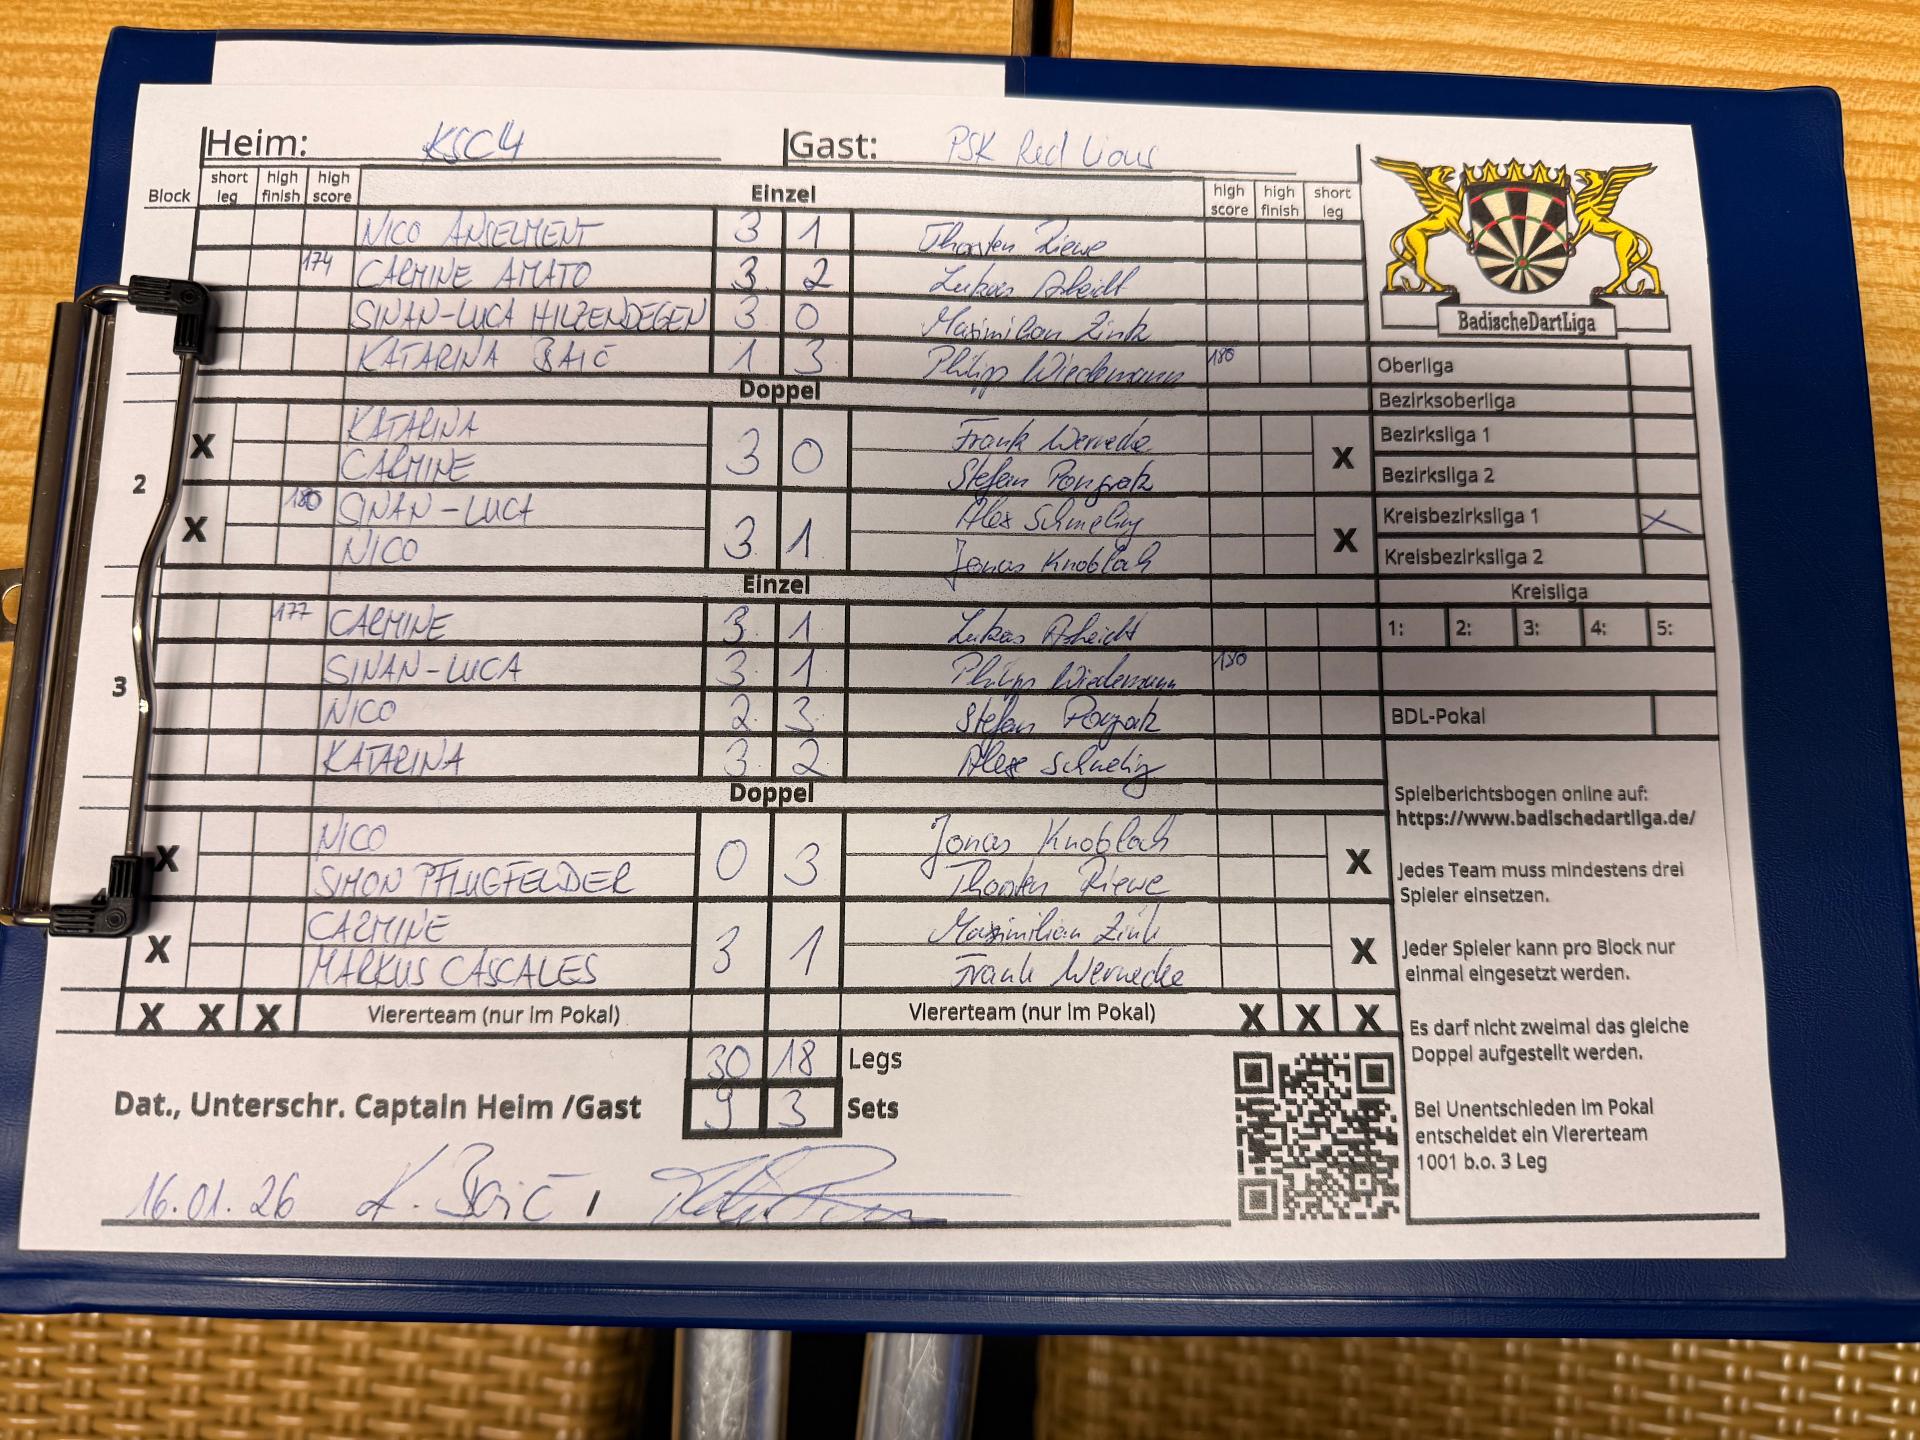 Heim: KSC4 Gast: PSK Red Lions
Block short leg high finish high score Einzel high score high finish short leg
NICO ANSELMENT 3 1 Thorsten Riewe
174 CARMINE AMATO 3 2 Lukas
SINAN-LUCA HILZENDEGEN 3 0 Maximilian Zink
KATARINA BAIĆ 1 3 Philipp Wiedemann 180
Doppel
2
X KATARINA 3 0 Frank Wernecke X
CARMINE Stefan Pongratz
X 180 SINAN-LUCA 3 1 Alex Schmeling X
NICO Jonas Knobloch
Einzel
3
177 CARMINE 3 1 Lukas
SINAN-LUCA 3 1 Philipp Wiedemann 180
NICO 2 3 Stefan Pongratz
KATARINA 3 2 Alex Schmeling
Doppel
4
X NICO 0 3 Jonas Knobloch X
SIMON PFLUGFELDER Thorsten Riewe
X CARMINE 3 1 Maximilian Zink X
MARKUS CASCALES Frank Wernecke
X X X Viererteam (nur im Pokal) Viererteam (nur im Pokal) X X X
30 18 Legs
Dat., Unterschr. Captain Heim /Gast 9 3 Sets
16.01.26 K. Baić /
BadischeDartLiga
Oberliga
Bezirksoberliga
Bezirksliga 1
Bezirksliga 2
Kreisbezirksliga 1 X
Kreisbezirksliga 2
Kreisliga
1: 2: 3: 4: 5:
BDL-Pokal
Spielberichtsbogen online auf:
https://www.badischedartliga.de/
Jedes Team muss mindestens drei
Spieler einsetzen.
Jeder Spieler kann pro Block nur
einmal eingesetzt werden.
Es darf nicht zweimal das gleiche
Doppel aufgestellt werden.
Bei Unentschieden im Pokal
entscheidet ein Viererteam
1001 b.o. 3 Leg